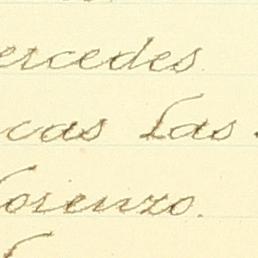 ercedes.
cas las
Lorenzo.